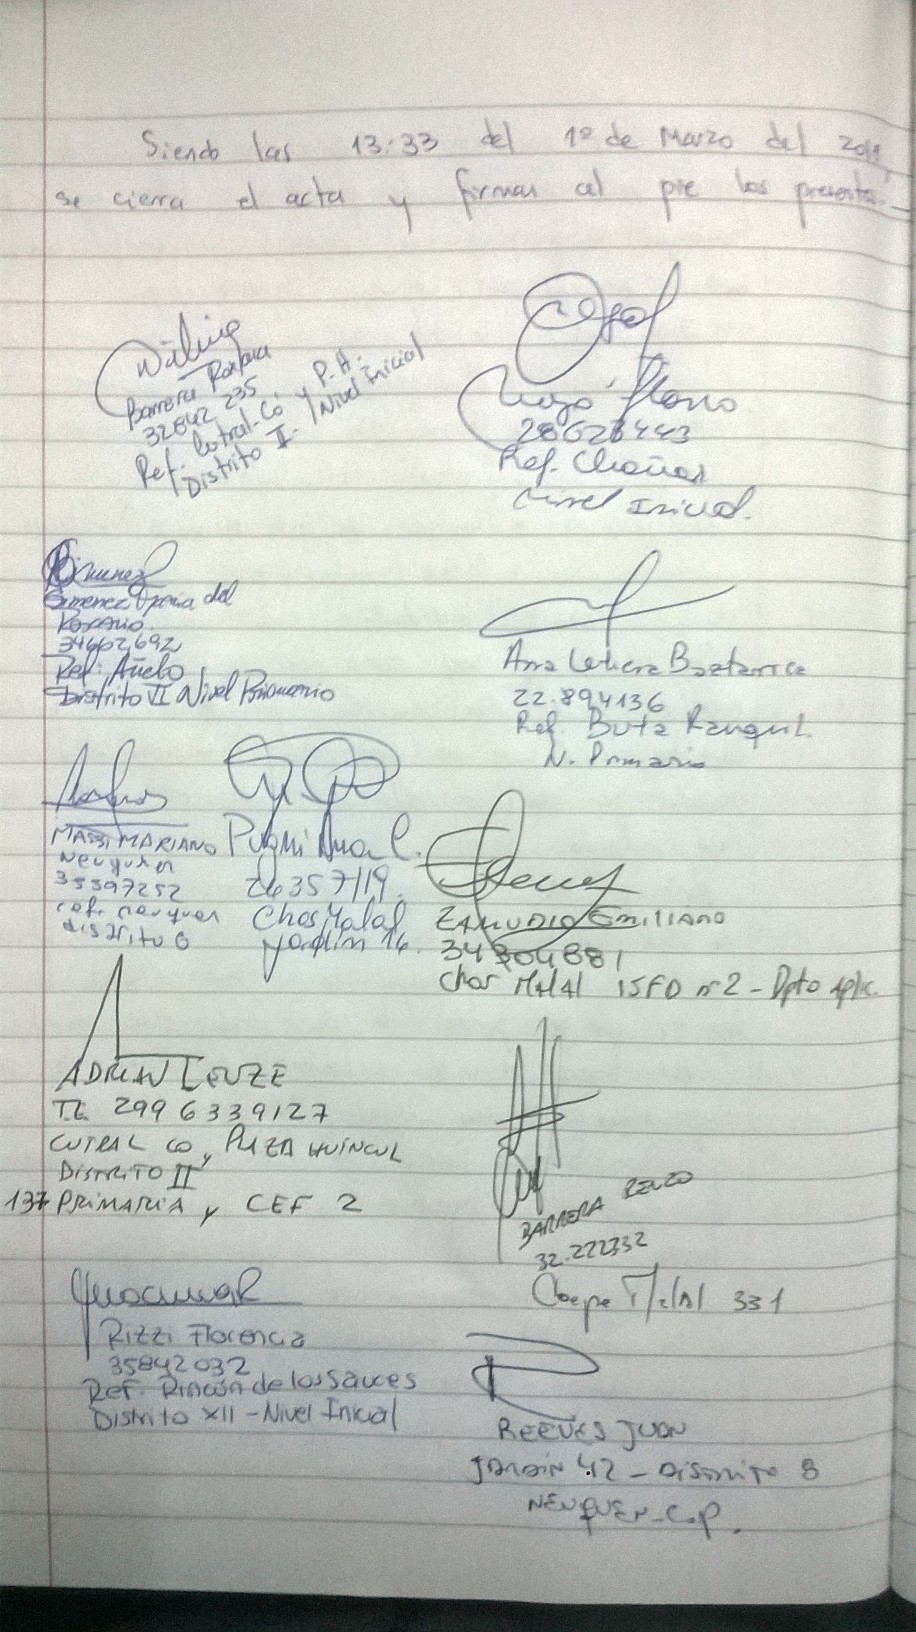 Siendo las 13:33 del 1º de Marzo del
se cierra el acta y firman al pie los
Barrera
32642 235
Ref. Cutral-Có y P.H.
Distrito II - Nivel Inicial
Hugo
28628443
Ref. Chañar
Nivel Inicial.
Gimenez del
Rosario
34662692
Ref: Añelo
Distrito VI Nivel Primario
Ana
22.894136
Ref. Buta Ranquil.
N. Primario
MASSI MARIANO
Neuquen
35597252
neuquen
distrito 8
Ana C.
26357119.
Chos Malal
Jardín 16.
ZAMUDIO EMILIANO
34304881
Chos Malal ISFD nº2 - Dpto Aplic.
ADRIAN LEUZE
TE 299 6339127
CUTRAL CO y PLAZA HUINCUL
DISTRITO II
137 PRIMARIA y CEF 2
BARRERA RENZO
32.222332
331
Rizzi Florencia
35842032
Ref. Rincón de los Sauces
Distrito XII - Nivel Inicial
REEVES JUAN
JARDIN 42 - DISTRITO 8
NEUQUEN - C.P.